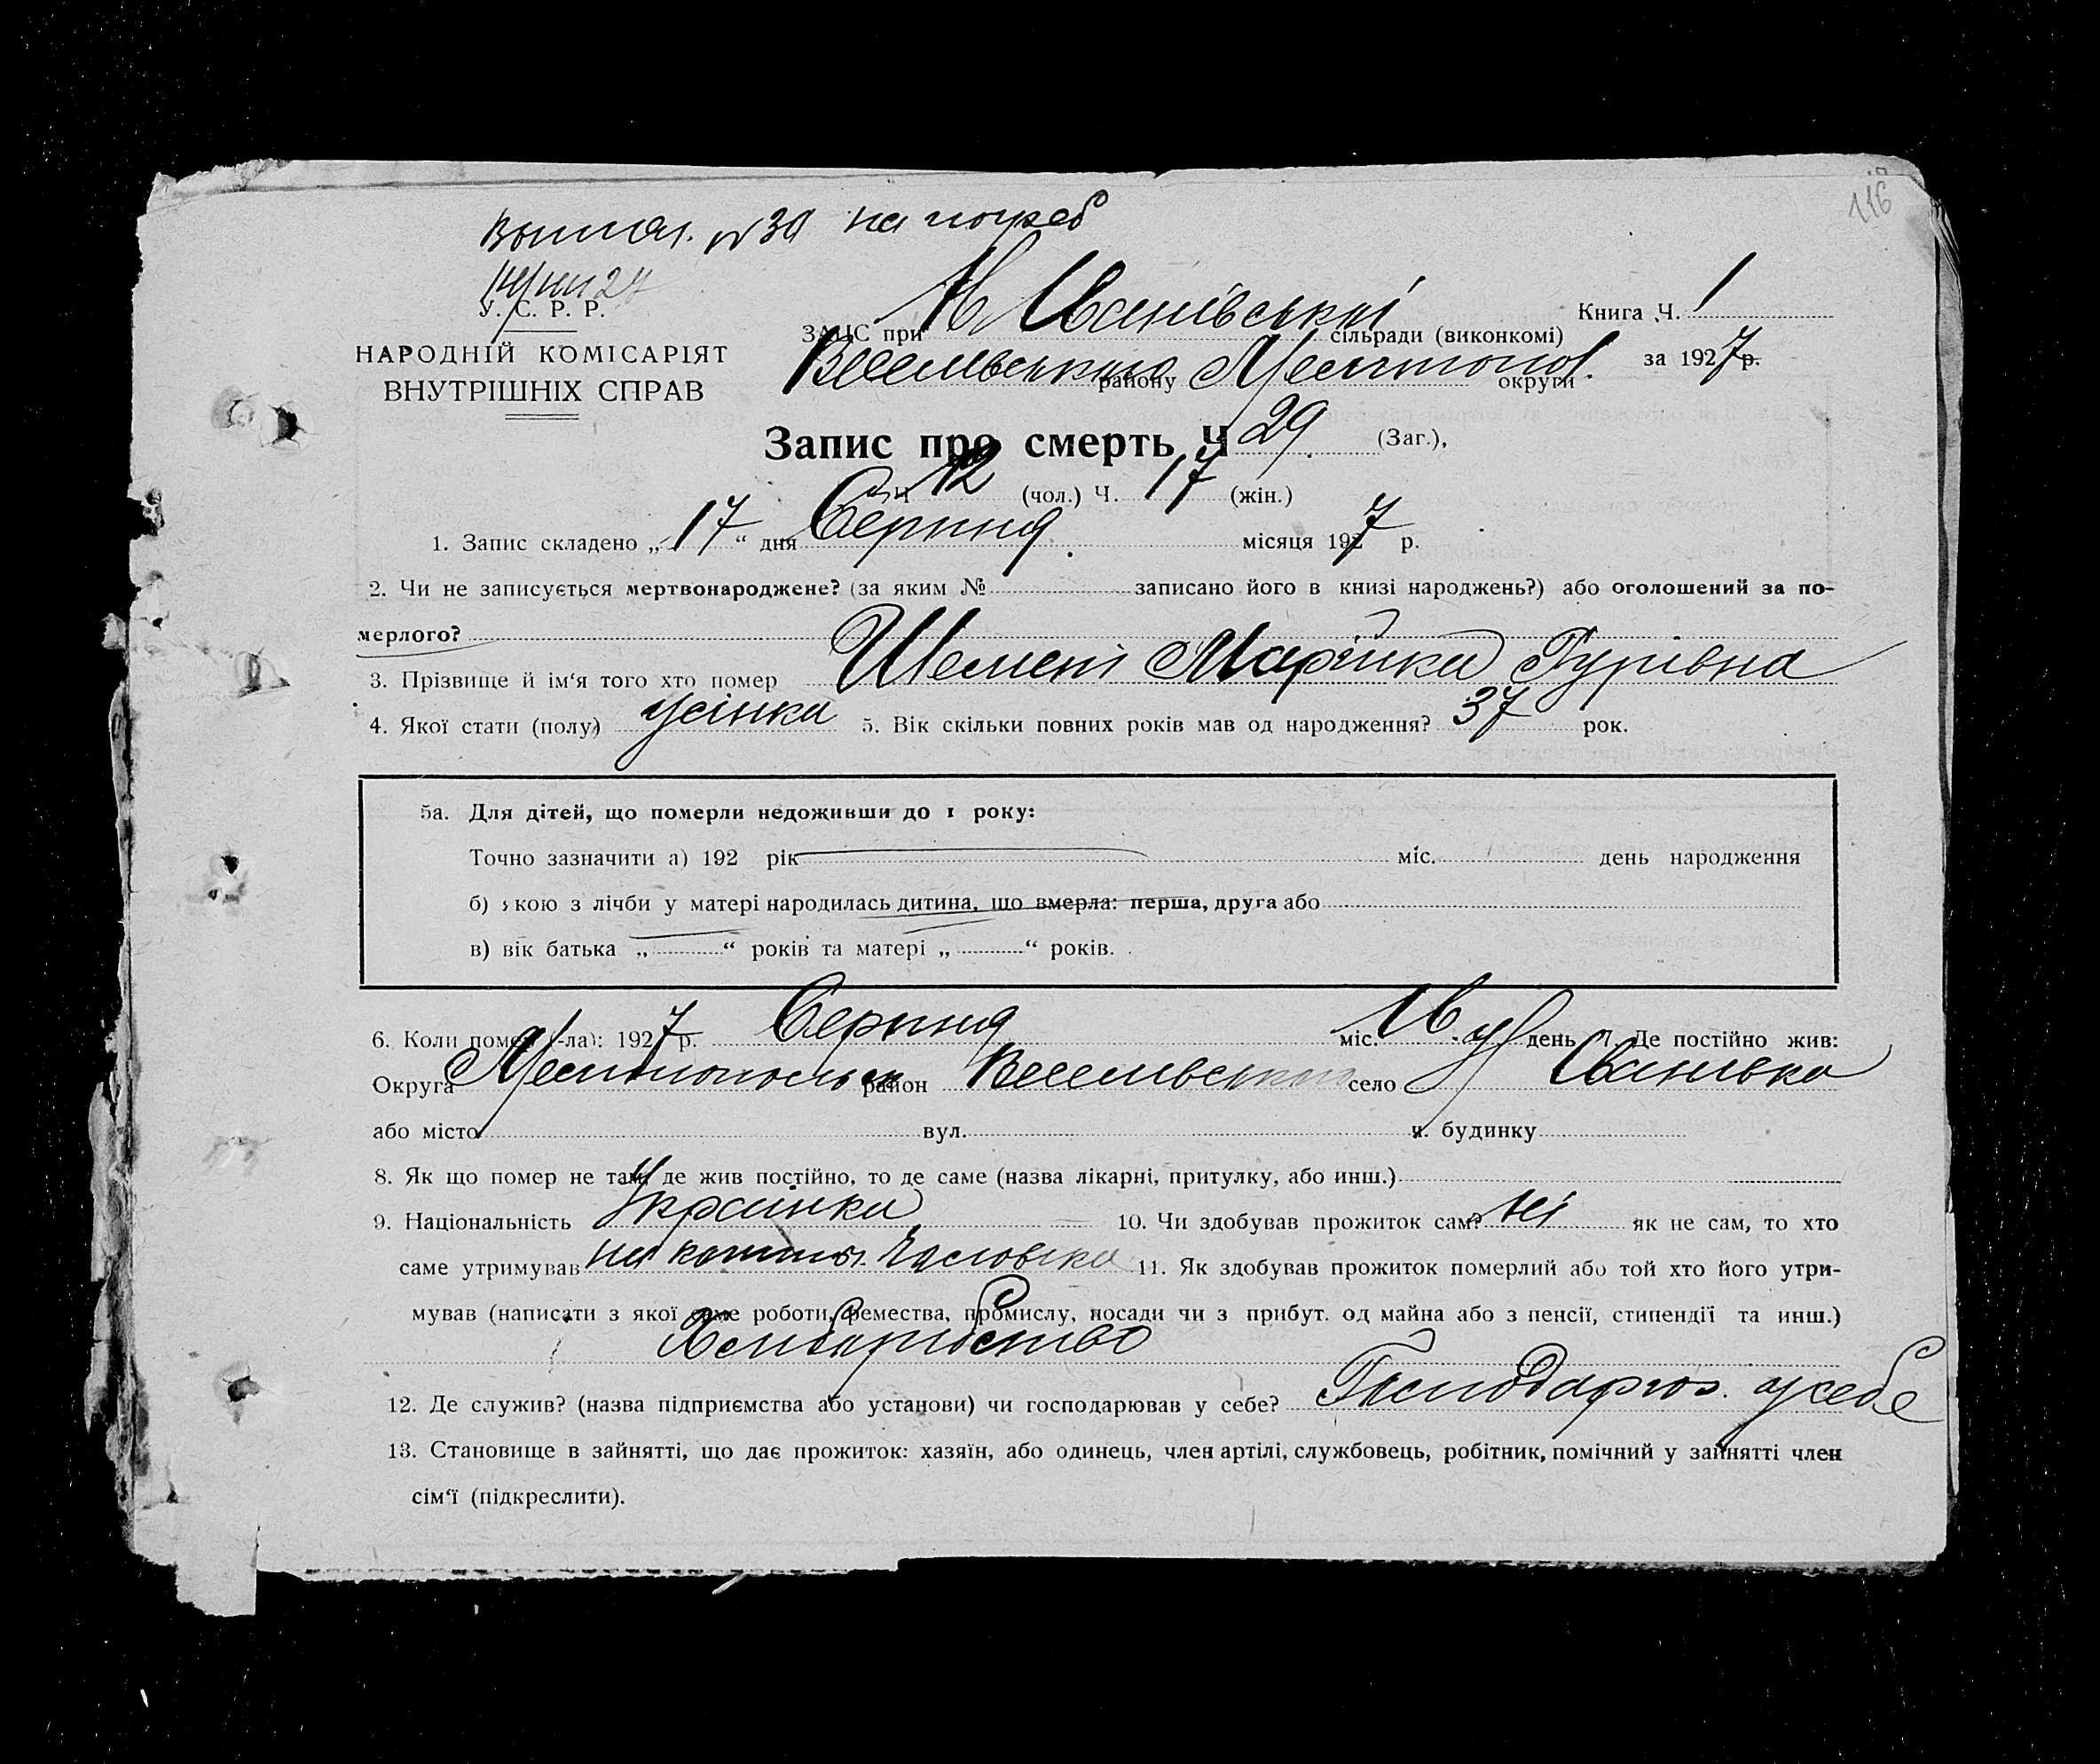 116
Выписл. № 30 на погреб
У. С. Р. Р.
НАРОДНІЙ КОМІСАРІЯТ
ВНУТРІШНІХ СПРАВ
ЗАГС при Н Иванівській сільради (виконкомі)
Книга Ч. 1
Веселівського району Мелітопол. округи
за 1927 р.
Запис про смерть Ч 29 (Заг.),
Ч 12 (чол.) Ч. 17 (жін.)
1. Запис складено „17“ дня Серпня місяця 1927 р.
2. Чи не записується мертвонароджене? (за яким № записано його в книзі народжень?) або оголошений за по-
мерлого?
3. Прізвище й ім‘я того хто помер Шемет Марійка Гурівна
4. Якої стати (полу) жінка 5. Вік скільки повних років мав од народження? 37 рок.
5а. Для дітей, що померли недоживши до 1 року:
Точно зазначити а) 192 рік міс. день народження
б) якою з лічби у матері народилась дитина, що вмерла: перша, друга або
в) вік батька „ “ років та матері „ “ років.
6. Коли помер (-ла): 1927 р. Серпня міс. 16 день 7. Де постійно жив:
Округа Мелітопольск район Веселівський село Иванівка
або місто вул. ч. будинку
8. Як що помер не там, де жив постійно, то де саме (назва лікарні, притулку, або инш.)
9. Національність Украінка 10. Чи здобував прожиток сам? ні як не сам, то хто
саме утримував на кошти Чоловіка 11. Як здобував прожиток померлий або той хто його утри-
мував (написати з якої саме роботи, ремества, промислу, посади чи з прибут. од майна або з пенсії, стипендії та инш.)
Хліборобство
12. Де служив? (назва підприємства або установи) чи господарював у себе? Господарюв. у себе
13. Становище в зайнятті, що дає прожиток: хазяїн, або одинець, член артілі, службовець, робітник, помічний у зайнятті член
сім‘ї (підкреслити).